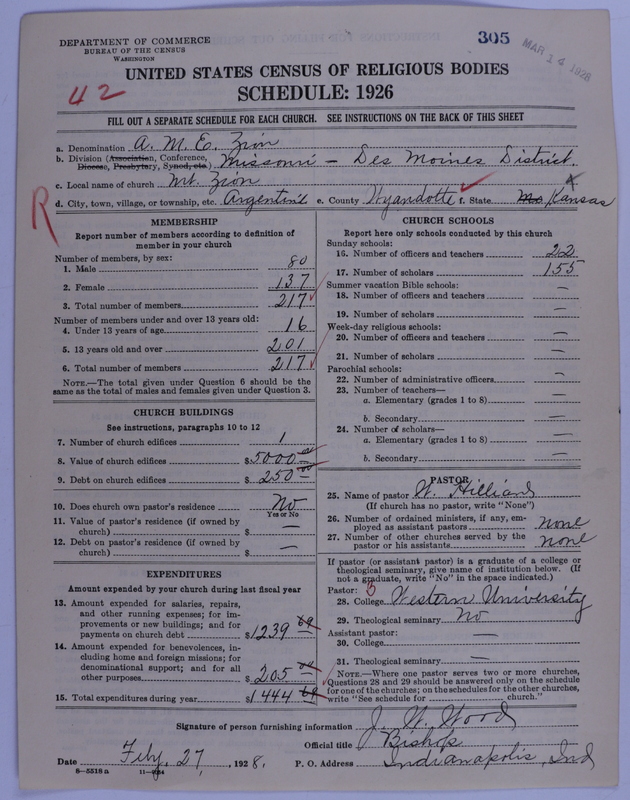 DEPARTMENT OF COMMERCE
BUREAU OF THE CENSUS
WASHINGTON
305
MAR 14 1928
UNITED STATES CENSUS OF RELIGIOUS BODIES
SCHEDULE: 1926
42
FILL OUT A SEPARATE SCHEDULE FOR EACH CHURCH. SEE INSTRUCTIONS ON THE BACK OF THIS SHEET
a. Denomination A. M. E. Zion
b. Division (Association, Conference, Diocese, Presbytery, Synod, etc.) Missouri – Des Moines District.
c. Local name of church Mt. Zion
d. City, town, village, or township, etc. Argentine e. County Wyandotte f. State Mo Kansas
R
MEMBERSHIP
Report number of members according to definition of
member in your church
Number of members, by sex:
1. Male 80
2. Female 137
3. Total number of members 217
Number of members under and over 13 years old:
4. Under 13 years of age 16
5. 13 years old and over 201
6. Total number of members 217
NOTE.—The total given under Question 6 should be
same as the total of males and females given under Question 3.
CHURCH BUILDINGS
See instructions, paragraphs 10 to 12
7. Number of church edifices 1
8. Value of church edifices $5000 00
9. Debt on church edifices $250 00
10. Does church own pastor's residence No
Yes or No
11. Value of pastor's residence (if owned by
church) $ —
12. Debt on pastor's residence (if owned by
church) $ —
EXPENDITURES
Amount expended by your church during last fiscal year
13. Amount expended for salaries, repairs,
and other running expenses; for im-
provements or new buildings; and for
payments on church debt $1239 69
14. Amount expended for benevolences, in-
cluding home and foreign missions; for
denominational support; and for all
other purposes $205 00
15. Total expenditures during year $1444 69
CHURCH SCHOOLS
Report here only schools conducted by this church
Sunday schools:
16. Number of officers and teachers 22
17. Number of scholars 155
Summer vacation Bible schools:
18. Number of officers and teachers —
19. Number of scholars —
Week-day religious schools:
20. Number of officers and teachers —
21. Number of scholars —
Parochial schools:
22. Number of administrative officers —
23. Number of teachers—
a. Elementary (grades 1 to 8) —
b. Secondary —
24. Number of scholars—
a. Elementary (grades 1 to 8) —
b. Secondary —
PASTOR
25. Name of pastor W. Hilliard
(If church has no pastor, write "None")
26. Number of ordained ministers, if any, em-
ployed as assistant pastors none
27. Number of other churches served by the
pastor or his assistants none
If pastor (or assistant pastor) is a graduate of a college or
theological seminary, give name of institution below. (If
not a graduate, write "No" in the space indicated.)
Pastor:
28. College Western University
29. Theological seminary No
Assistant pastor:
30. College —
31. Theological seminary —
NOTE.—Where one pastor serves two or more churches,
Questions 28 and 29 should be answered only on the schedule
for one of the churches; on the schedules for the other churches,
write "See schedule for church."
Signature of person furnishing information J. W. Wood
Official title Bishop
Date Feby. 27, 1928. P. O. Address Indianapolis, Ind
8—5518a